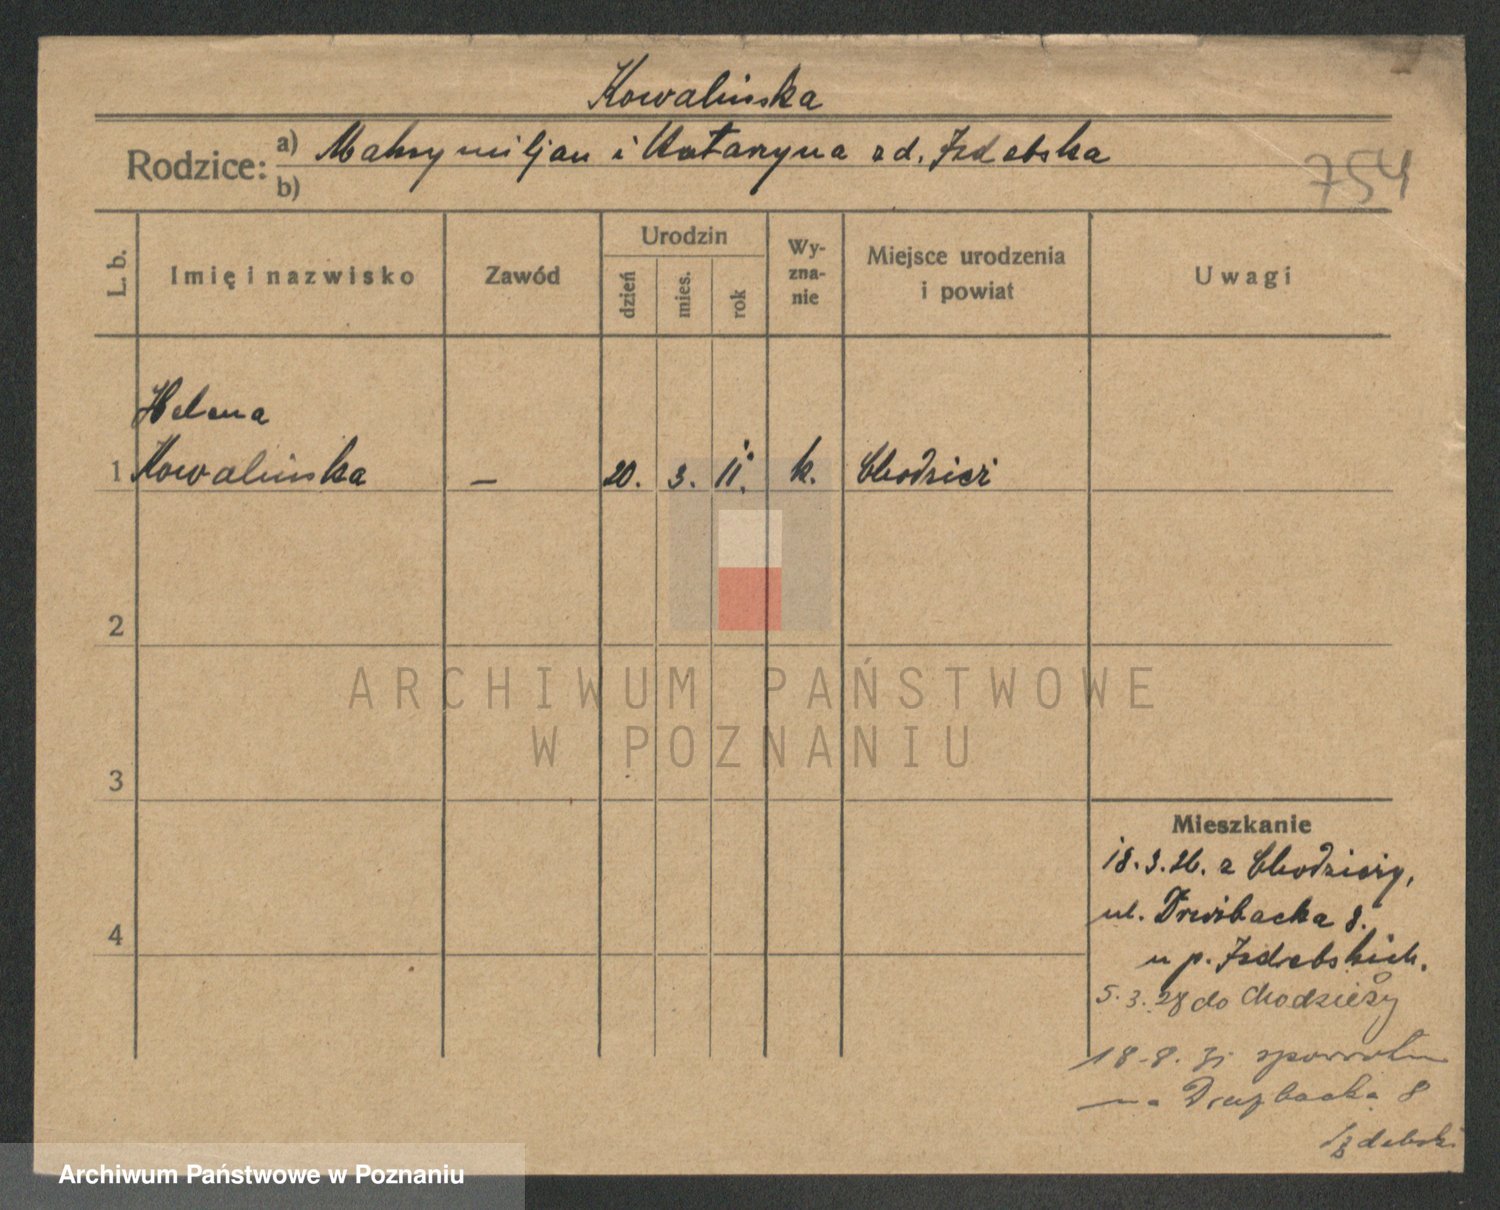 Kowalińska
Rodzice: a) Maksymiljan i Katarzyna zd. Izdebska
b)
754
L. b.
Imię i nazwisko
Zawód
Urodzin
dzień
mies.
rok
Wy-
zna-
nie
Miejsce urodzenia
i powiat
Uwagi
Helena
1 Kowalińska — 20. 3. 11. k. Chodzież
2
ARCHIWUM PAŃSTWOWE
W POZNANIU
3
Mieszkanie
18.3.26. z Chodzieży,
ul. 8.
4
u p. Izdebskich.
5.3.28 do Chodzieży
18.8.31
na 8
Izdebski
Archiwum Państwowe w Poznaniu